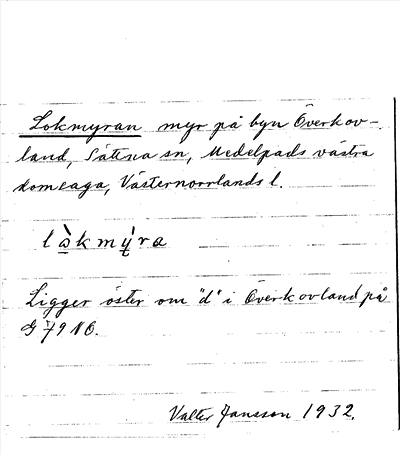 Lokmyran myr på byn Överkov-
land, Sättna sn, Medelpads västra
domsaga, Västernorrlands l.
lò̠kmỳ̠ra
Ligger öster om "d" i Överkovland på
G 79 NO.
Valter Jansson 1932.